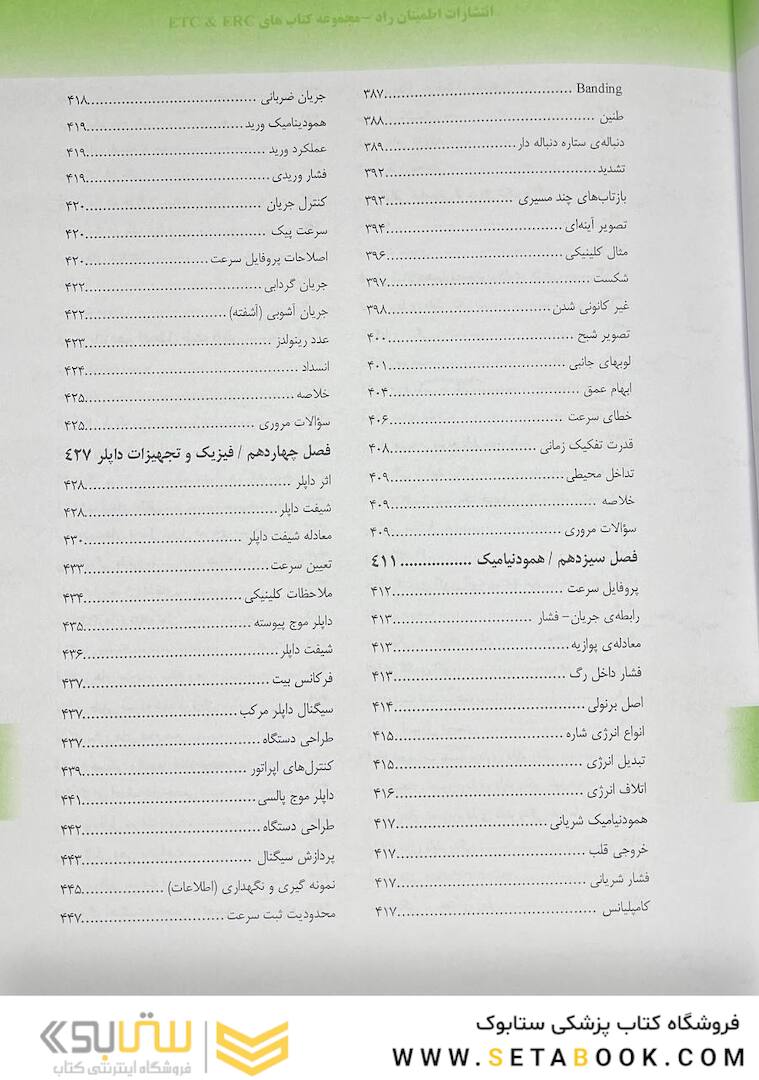 انتشارات اطمینان راد - مجموعه کتاب های ETC & ERC
Banding ........ ۳۸۷
طنین ........ ۳۸۸
دنباله‌ی ستاره دنباله دار ........ ۳۸۹
تشدید ........ ۳۹۲
بازتاب‌های چند مسیری ........ ۳۹۳
تصویر آینه‌ای ........ ۳۹۴
مثال کلینیکی ........ ۳۹۶
شکست ........ ۳۹۷
غیر کانونی شدن ........ ۳۹۸
تصویر شبح ........ ۴۰۰
لوبهای جانبی ........ ۴۰۱
ابهام عمق ........ ۴۰۴
خطای سرعت ........ ۴۰۶
قدرت تفکیک زمانی ........ ۴۰۸
تداخل محیطی ........ ۴۰۹
خلاصه ........ ۴۰۹
سؤالات مروری ........ ۴۰۹
فصل سیزدهم / همودنیامیک ........ ٤١١
پروفایل سرعت ........ ۴۱۲
رابطه‌ی جریان- فشار ........ ۴۱۳
معادله‌ی پوازیه ........ ۴۱۳
فشار داخل رگ ........ ۴۱۳
اصل برنولی ........ ۴۱۴
انواع انرژی شاره ........ ۴۱۵
تبدیل انرژی ........ ۴۱۵
اتلاف انرژی ........ ۴۱۶
همودنیامیک شریانی ........ ۴۱۷
خروجی قلب ........ ۴۱۷
فشار شریانی ........ ۴۱۷
کامپلیانس ........ ۴۱۷
جریان ضربانی ........ ۴۱۸
همودینامیک ورید ........ ۴۱۹
عملکرد ورید ........ ۴۱۹
فشار وریدی ........ ۴۱۹
کنترل جریان ........ ۴۲۰
سرعت پیک ........ ۴۲۰
اصلاحات پروفایل سرعت ........ ۴۲۰
جریان گردابی ........ ۴۲۲
جریان آشوبی (آشفته) ........ ۴۲۲
عدد رینولدز ........ ۴۲۳
انسداد ........ ۴۲۴
خلاصه ........ ۴۲۵
سؤالات مروری ........ ۴۲۵
فصل چهاردهم / فیزیک و تجهیزات داپلر ٤٢٧
اثر داپلر ........ ۴۲۸
شیفت داپلر ........ ۴۲۸
معادله شیفت داپلر ........ ۴۳۰
تعیین سرعت ........ ۴۳۳
ملاحظات کلینیکی ........ ۴۳۴
داپلر موج پیوسته ........ ۴۳۵
شیفت داپلر ........ ۴۳۶
فرکانس بیت ........ ۴۳۷
سیگنال داپلر مرکب ........ ۴۳۷
طراحی دستگاه ........ ۴۳۷
کنترل‌های اپراتور ........ ۴۳۹
داپلر موج پالسی ........ ۴۴۱
طراحی دستگاه ........ ۴۴۲
پردازش سیگنال ........ ۴۴۳
نمونه گیری و نگهداری (اطلاعات) ........ ۴۴۵
محدودیت ثبت سرعت ........ ۴۴۷
فروشگاه کتاب پزشکی ستابوک
WWW.SETABOOK.COM
ستابوک
فروشگاه اینترنتی کتاب